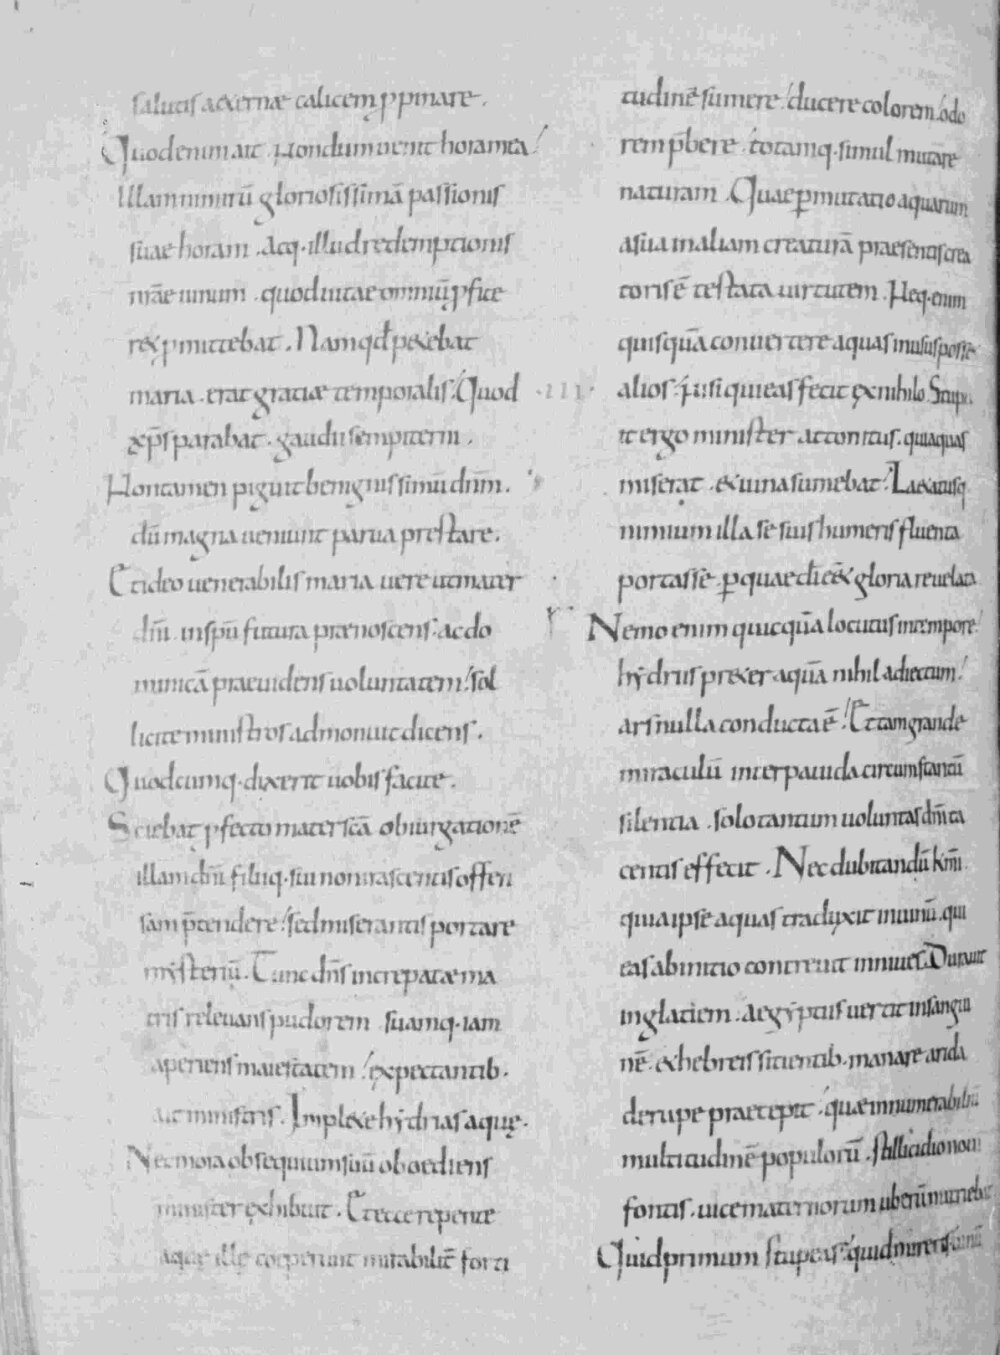 salutis aeternae calicem ꝓpinare.
Quod enim ait. Nondum uenit hora mea!
Illam nimirū gloriosissimā passionis
suae horam. atq· illud redemptionis
nr̄ae uinum. quod uitae omniū ꝓfice
ret ꝓmittebat. Nam qd̄ petebat
maria. erat gratiae temporalis! Quod
xp̄s parabat. gaudii sempiterni.
Non tamen piguit benignissimū dn̄m.
dū magna ueniunt parua prestare.
Et ideo uenerabilis maria uere ut mater
dn̄i. in sp̄u futura praenoscens. ac do
minicā praeuidens uoluntatem! sol
licite ministros admonuit dicens.
Quodcumq· dixerit uobis facite.
Sciebat ꝑfecto mater sc̄a obiurgationē
illam dn̄i filiiq· sui non irascentis offen
sam p̄tendere! sed miserantis portare
mẏsteriū. Tunc dn̄s increpatae ma
tris releuans pudorem. suamq· iam
aperiens maiestatem! expectantib·
ait ministris. Implete hẏdrias aquę.
Nec mora obsequium suū oboediens
minister exhibuit. Et ecce repente
aquae ille coeperunt mirabilit̄ forti
tudinē sumere! ducere colorem! odo
rem p̄bere. totamq· simul mutare
naturam. Quae ꝑmutatio aquarum
a sua in aliam creaturā praesentis crea
toris ē testata uirtutem. Neq· enim
·III·
quisquā conuertere aquas in usus posset
alios. nisi qui eas fecit ex nihilo. Stupu
it ergo minister attonitus. quia aquas
miserat. et uina sumebat! Laetatusq·
nimium illa se suis humeris fluenta
portasse. ꝑ quae dī ēēt gloria reuelata
Nemo enim quicquā locutus in tempore!
hẏdriis preter aquā nihil adiectum!
ars nulla conducta ē! Et tam grande
miraculū inter pauida circumstantiū
silentia. solo tantum uoluntas dn̄i ta
centis effecit. Nec dubitandū km̄i
quia ipse aquas traduxit in uinū. qui
eas ab initio contreuit in niues. Durauit
in glatiem. aegẏptiis uertit in sangui
nē. et hebreis sitientib· manare arida
de rupe praecepit. quae innumerabiliū
multitudinē populorū. stillicidio noui
fontis. uice maternorum uberū nutriebat
Quid primum stupeas! quid mireris